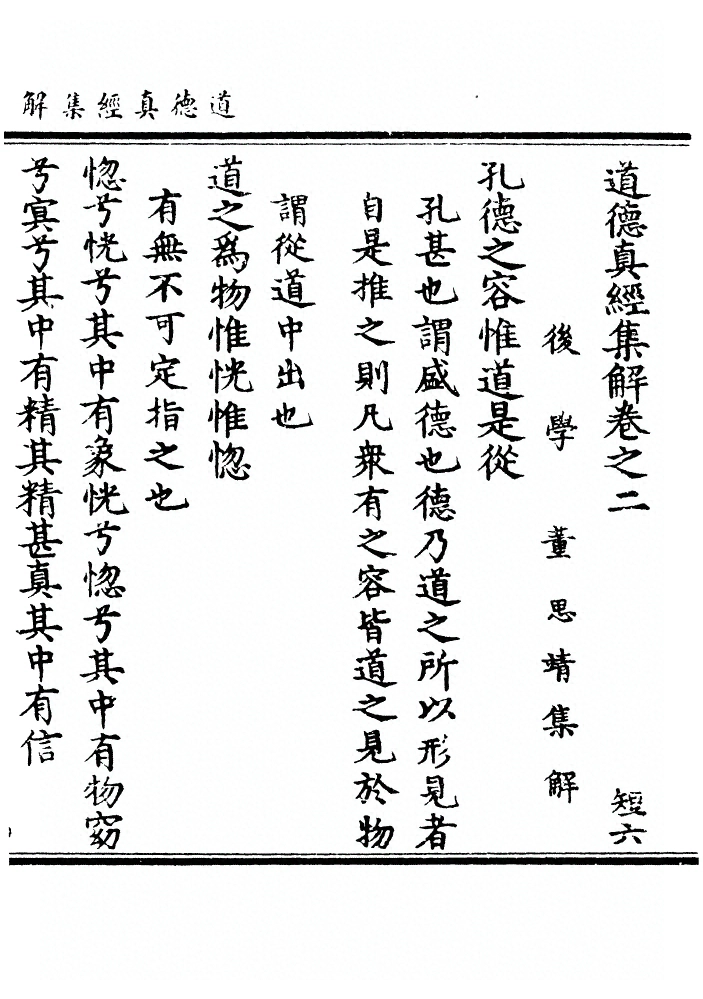 道德真經集解
道德真經集解卷之二
短六
後學　董思靖集解
孔德之容惟道是從
孔甚也謂盛德也德乃道之所以形見者
自是推之則凡衆有之容皆道之見於物
謂從道中出也
道之爲物惟恍惟惚
有無不可定指之也
惚兮恍兮其中有象恍兮惚兮其中有物窈
兮冥兮其中有精其精甚真其中有信